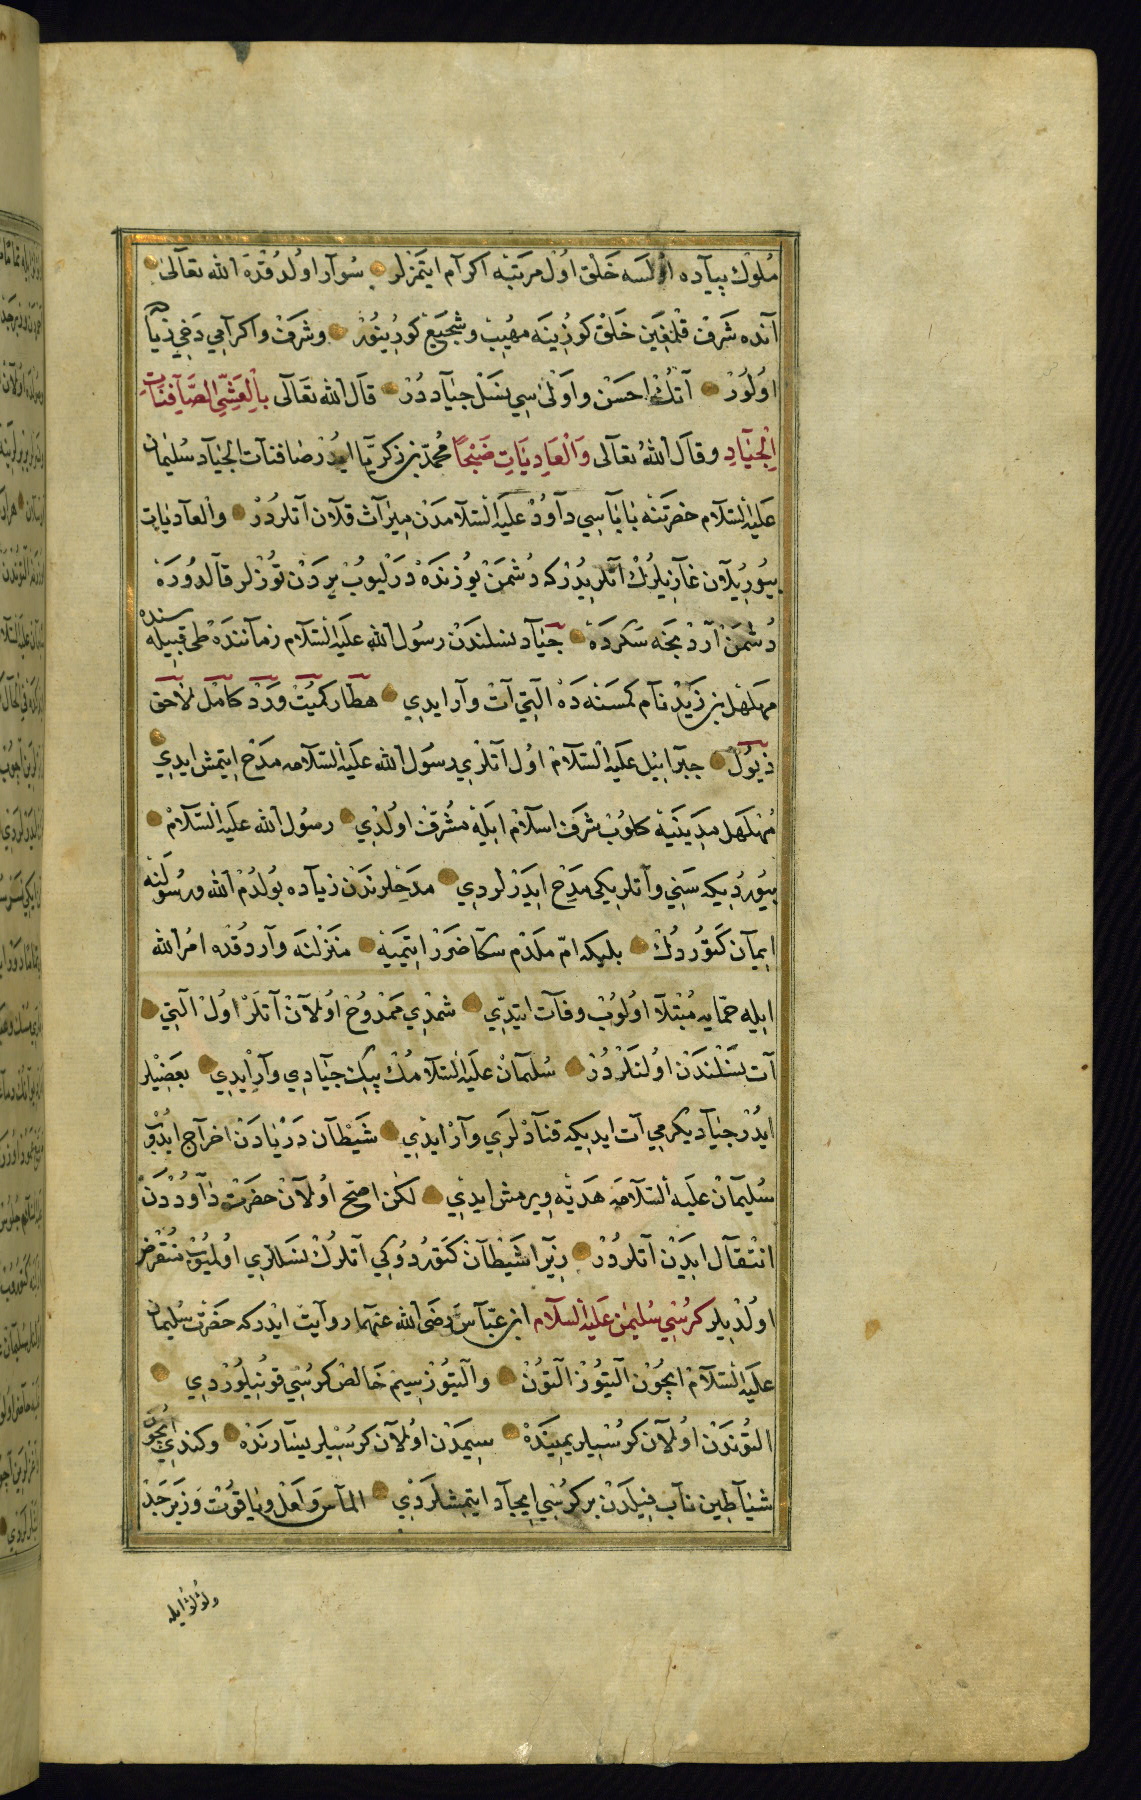 مُلوك پیآده اولسه خَلْق اوْل مرتبه اکرآم ایتمزلر سُوار اولدُقْدَه الله تعالی
آنده شَرَف قْلْغِین خَلْق کوزینَه مهُیب و شجیع کورینور و شرف و اکرآمي دَخي زیآ
اولُورْ آتكْ احسَن و اَوْلیٰ سي نسْل جیآددُرْ قالَ الله تَعَالی بِالْعَشِّي الصَّآفِنَاتِ
الْجیَآدِ وقالَ اللهُ تعالی وَالْعَادِیَاتِ ضَبْحًا محُمدّ بن ذکریّا ایدُر صَافنات الجیآد سُلیمان
عَلیْه السّلام حضرَتنه بَابَاسي دآوُدْ علَیْه السّلامدَن میرآث قلآن آتلردُرْ والْعادیاتِ
بیُوریلآن غازیلرُكْ آتلریدُر که دُشمَنْ یُوزندَه دَرْلیوُبْ یردَن تُوزلر قالدُورَه
دُشمَنْ آردنجَه سَکردَه جیآد نسلندَن رسُول الله علَیْه السّلام زمآننَدَه طی قبیله سندَه
مهَلهْل بن زَیدْ نآم کمسَنَه دَه آلتي آت وآر ایدي هطّار کمیت وَرْد کامل لاحق
ذیوُل جبرآئیل عَلیه السّلامْ اول آتلري رسُول الله علیه السّلامه مَدْح ایتمش ایدي
مُهلَهل مدینَیه کلوُبْ شرف اسلامْ ایلَه مشُرّف اولدي رسُول الله علَیه السّلامْ
بیُوردیکه سَني وآتلریکي مَدْح ایدَرْلردي مَدحلرندَن زیآده بولدُم الله ورسُولنه
ایمآن کتوُردُكْ بلیکه امّ ملدَم سکا ضَررْ ایتمیه منزلنه وآردقده امْرالله
ایله حمّایه مُبْتلآ اولُوبْ وفآت ایتدي شمْدي ممدُوح اولآن آتلَرْ اولْ آلتي
آت نسْلندَن اولنلَرْدُرْ سُلیمآنْ علَیه السّلامُكْ بیك جیآدي وآر ایدي بعَضیلر
ایدُرْ جیآد یکرمي آت ایدیکه قنآدلَري وآرْ ایدي شَیْطآن دَرْیادَن اخرآج ایدُوبْ
سُلیمآنْ عَلیه السّلامَه هَدیّه ویرمش ایدي لکن اصحّ اولآنْ حضَرَت دآوُدْدَنْ
انْتقآل ایدَن آتلردُرْ زیرآ شَیْطآنْ کتوُردوُکي آتلرُكْ نسَللري اولمیُوبْ منُقرض
اولدیلر کرُسْي سُلیمٰن عَلیه السّلآم ابن عبّآس رضی الله عنهما روآیتْ ایدرکه حضَرَت سُلیمان
علَیه السّلآمْ ایچُونْ آلتیوُزْ آلتوُنْ وآلتیوُزْ سیم خالصْ کرسْي قونیلوُرْدي
آلتوُندَن اولآن کرسُیلر یمیندَه سیمَدن اولآن کرسُیلر یسآرندَه وکندي ایچون
شیآطین نآب فیلدَن بر کرسْي ایجآد ایتمشلردي الماس و لعل و یاقوُت و زبَرجَدْ
ولؤلؤ ایله